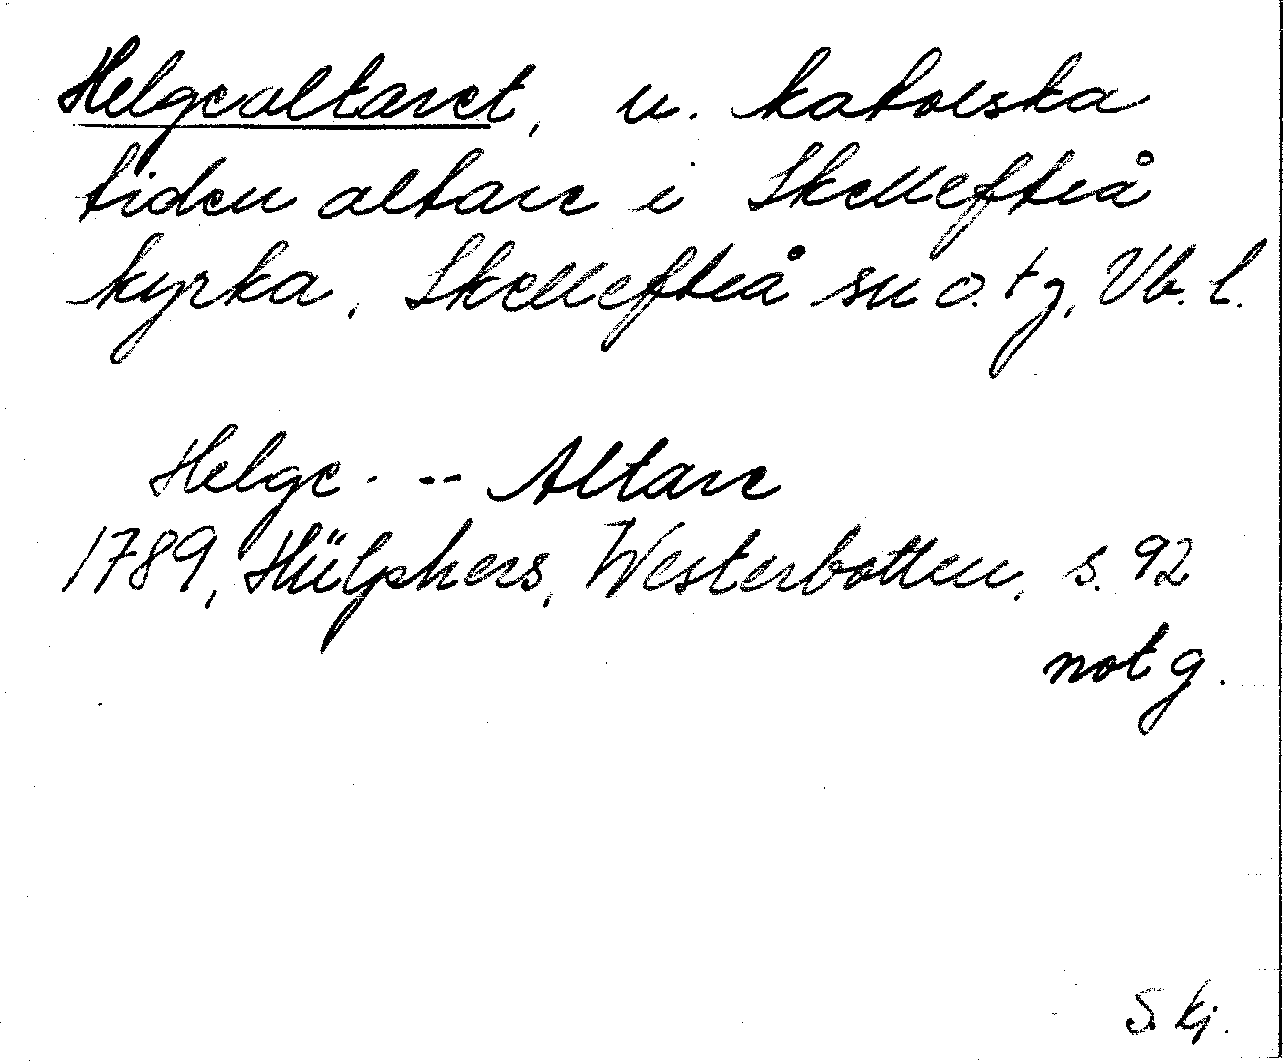 Helgealtaret, u. katolska
tiden altare i Skellefteå
kyrka, Skellefteå sn o. tg, Vb. l.
Helge - -- Altare
1789, Hülphers, Westerbotten, s. 92
not g.
S. kj.